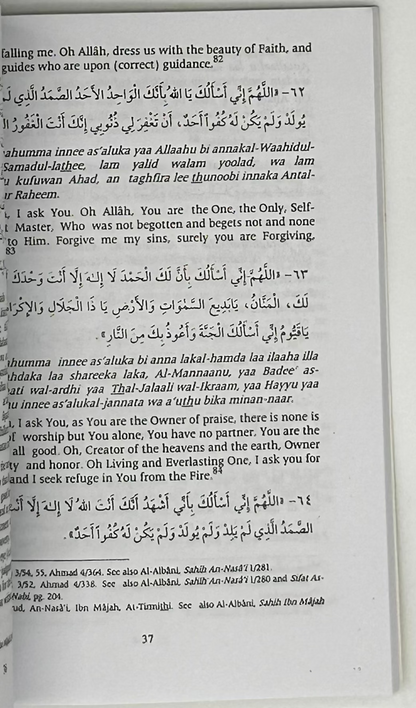 falling me. Oh Allâh, dress us with the beauty of Faith, and
guides who are upon (correct) guidance.82
٦٢- «اللَّهُمَّ إِنِّي أَسْأَلُكَ يَا اللهُ بِأَنَّكَ الْوَاحِدُ الأَحَدُ الصَّمَدُ الَّذِي لَمْ
يُولَدْ وَلَمْ يَكُنْ لَهُ كُفُواً أَحَدٌ، أَنْ تَغْفِرَ لِي ذُنُوبِي إِنَّكَ أَنْتَ الْغَفُورُ
ahumma innee as'aluka yaa Allaahu bi annakal-Waahidul-
Samadul-lathee, lam yalid walam yoolad, wa lam
u kufuwan Ahad, an taghfira lee thunoobi innaka Antal-
ur Raheem.
I ask You. Oh Allâh, You are the One, the Only, Self-
t Master, Who was not begotten and begets not and none
to Him. Forgive me my sins, surely you are Forgiving,
83
٦٣- «اللَّهُمَّ إِنِّي أَسْأَلُكَ بِأَنَّ لَكَ الْحَمْدَ لَا إِلَهَ إِلَّا أَنْتَ وَحْدَكَ
لَكَ، الْمَنَّانُ، يَابَدِيعَ السَّمَوَاتِ وَالأَرْضِ يَا ذَا الْجَلَالِ وَالإِكْرَا
يَاقَيُّومُ إِنِّي أَسْأَلُكَ الْجَنَّةَ وَأَعُوذُ بِكَ مِنَ النَّارِ».
ahumma innee as'aluka bi anna lakal-hamda laa ilaaha illa
hdaka laa shareeka laka, Al-Mannaanu, yaa Badee' as-
ati wal-ardhi yaa Thal-Jalaali wal-Ikraam, yaa Hayyu yaa
u innee as'alukal-jannata wa a'uthu bika minan-naar.
I ask You, as You are the Owner of praise, there is none is
f worship but You alone, You have no partner, You are the
all good. Oh, Creator of the heavens and the earth, Owner
ty and honor. Oh Living and Everlasting One, I ask you for
and I seek refuge in You from the Fire.84
٦٤- «اللَّهُمَّ إِنِّي أَسْأَلُكَ بِأَنِّي أَشْهَدُ أَنَّكَ أَنْتَ اللهُ لَا إِلَهَ إِلَّا أَنْتَ
الصَّمَدُ الَّذِي لَمْ يَلِدْ وَلَمْ يُولَدْ وَلَمْ يَكُنْ لَهُ كُفُواً أَحَدٌ».
3/54, 55, Ahmad 4/364. See also Al-Albâni, Sahih An-Nasâ'i 1/281.
3/52, Ahmad 4/338. See also Al-Albâni, Sahih An-Nasâ'i 1/280 and Sifat As-
Nabi, pg. 204.
ud, An-Nasâ'i, Ibn Mâjah, At-Tirmithi. See also Al-Albâni, Sahih Ibn Mâjah
37